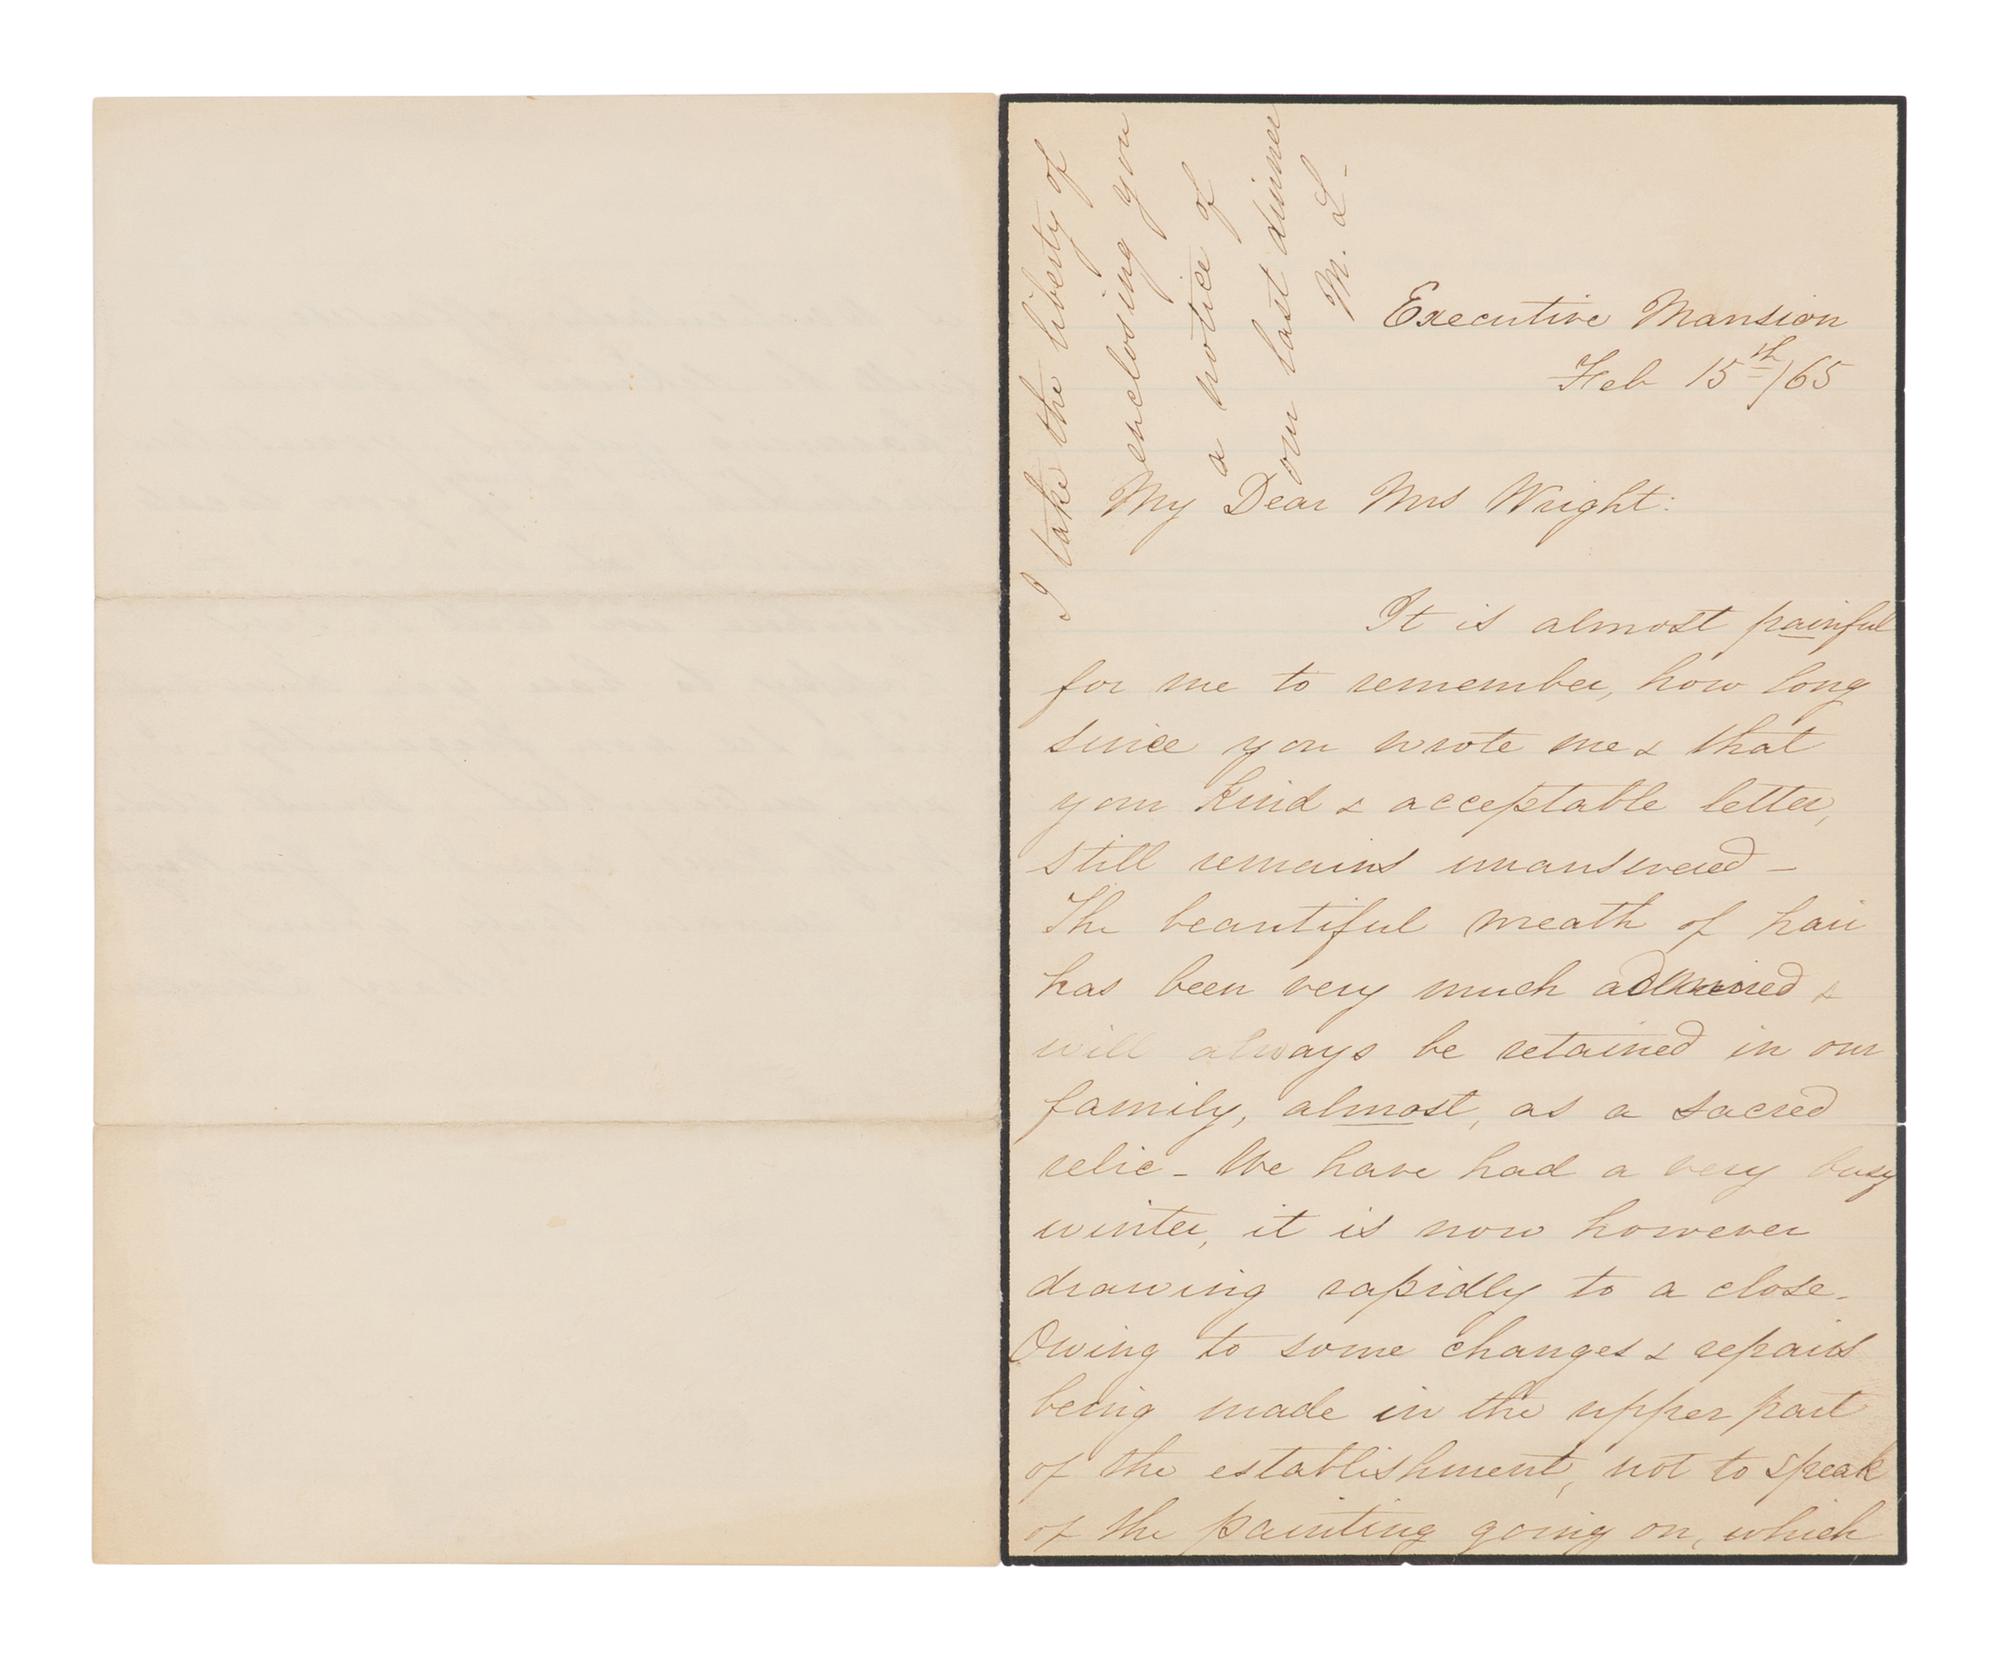 Executive Mansion
Feb 15th/65
My Dear Mrs Wright:
It is almost painful
for me to remember, how long
since you wrote me & that
your kind & acceptable letter,
still remains unanswered -
The beautiful wreath of hair
has been very much admired &
will always be retained in our
family, almost, as a sacred
relic - We have had a very busy
winter, it is now however
drawing rapidly to a close -
Owing to some changes & repairs
being made in the upper part
of the establishment, not to speak
of the painting going on, which
I take the liberty of
enclosing you
a notice of
our last dinner
M. L -